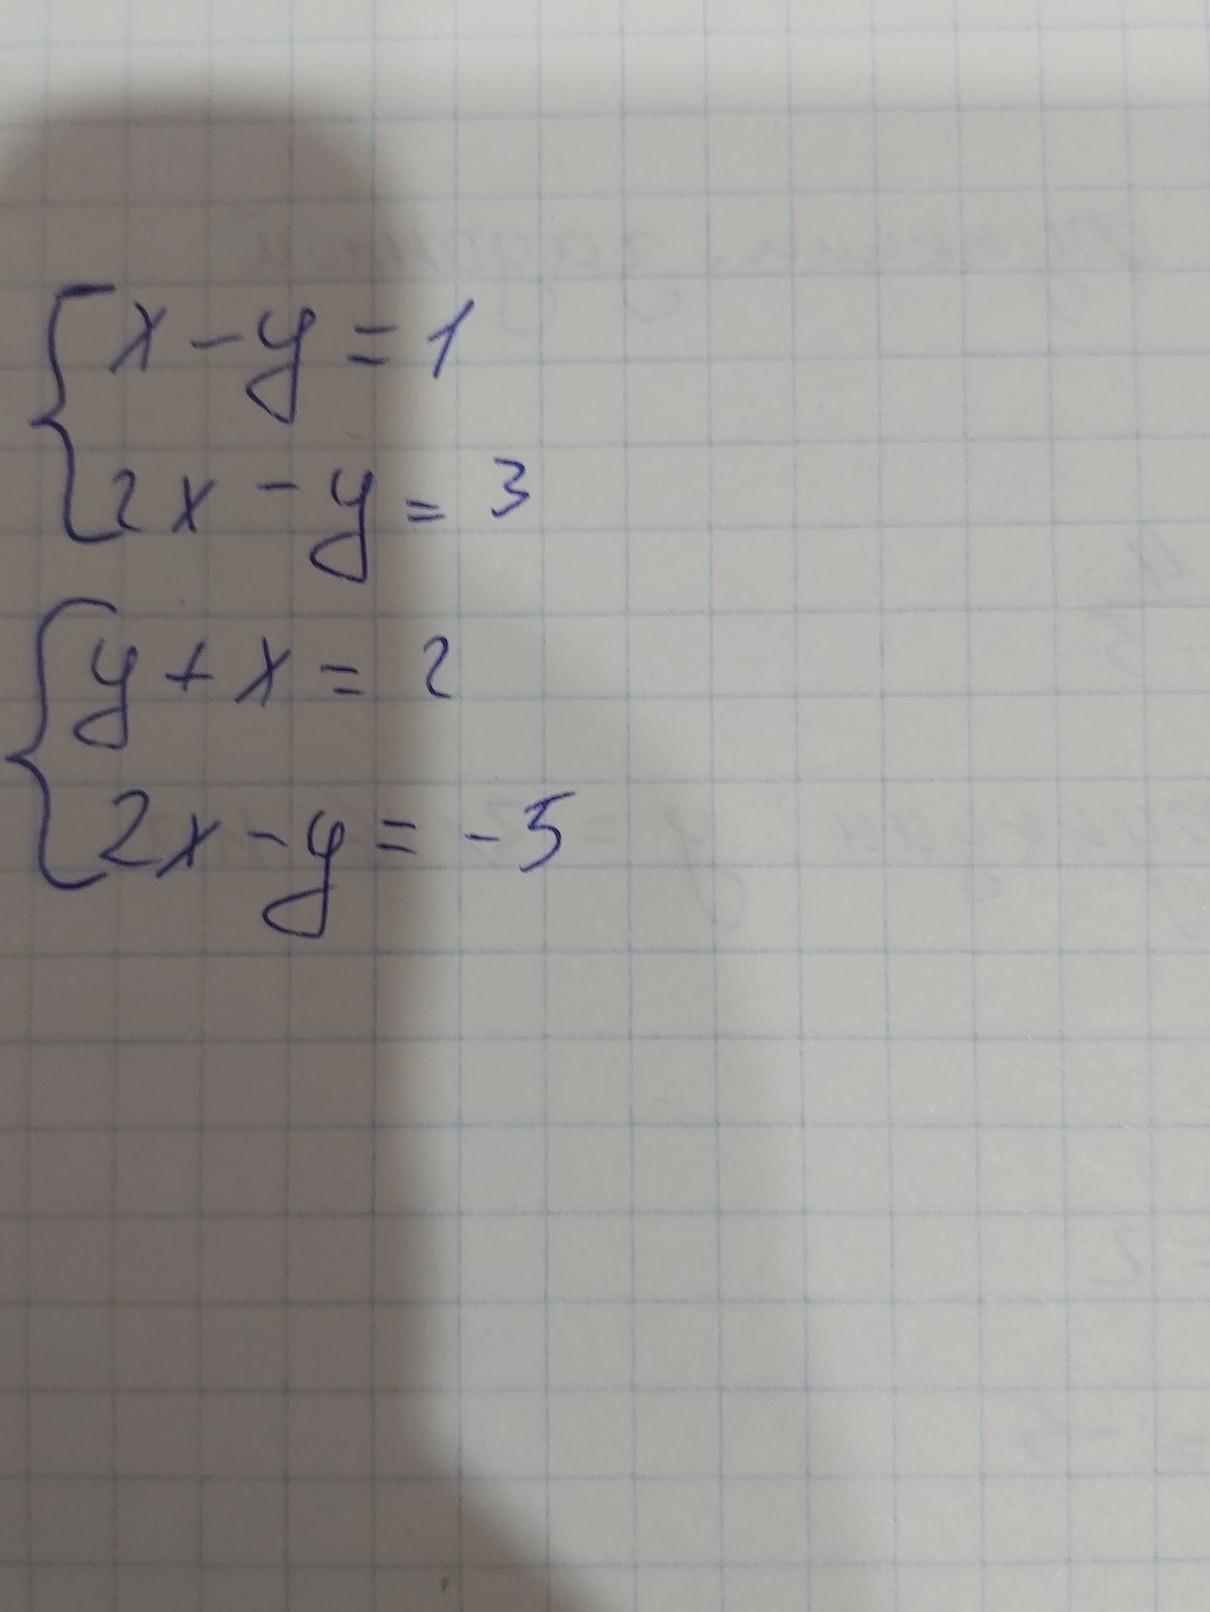 x - y = 1
2x - y = 3
y + x = 2
2x - y = -5